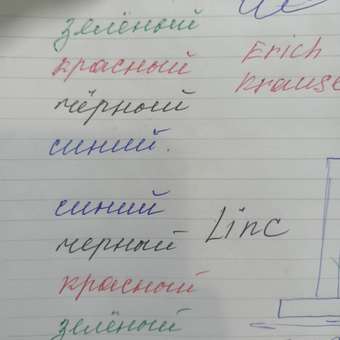 зелёный
красный Erich
чёрный Krause
синий.
синий
черный Linc
красный
зелёный